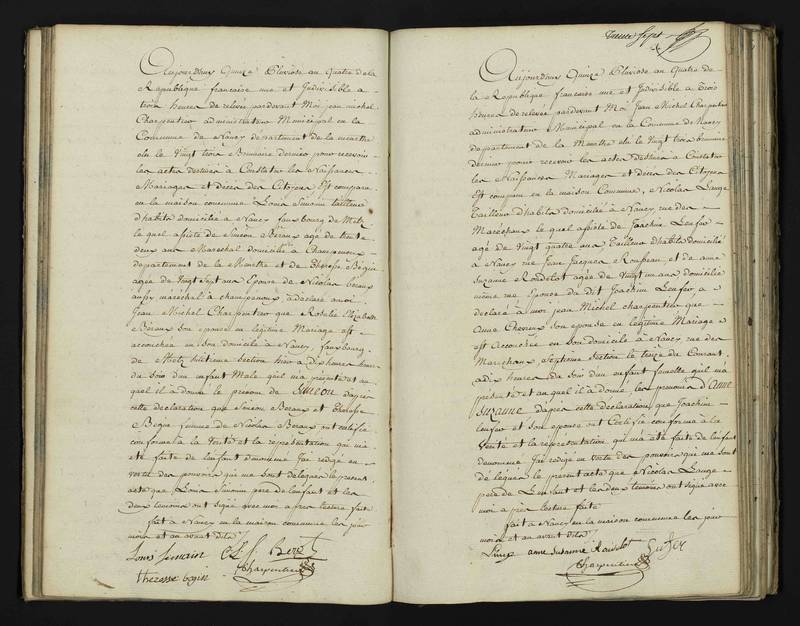 Aujourdhuy Quinze Pluviose an Quatre de la
Republique française une et Indivisible a
trois heures de relevée pardevant Moi jean michel
Charpentier administrateur Municipal en la
Commune de Nancy departement de la meurthe
elu le Vingt trois Brumaire dernier pour recevoir
les actes destinés a Constater les Naissances
Mariages et décès des Citoyens Est comparu
en la maison commune Louis Simonin tailleur
d'habits domicilié a Nancy faux bourg de Metz
le quel assisté de Simeon Beraux agé de trente
deux ans Marechal domicilié a Champenoux
departement de la Meurthe et de Therese Begin
agée de Vingt Sept ans Epouse de Nicolas beraux
aussy maréchal a champenoux, a declaré a moi
Jean Michel Charpentier que Rosalie Elizabeth
Beraux son epouse en legitime Mariage est
accouchée en son domicile a Nancy, faux bourg
de Metz huitieme Section hier a dix heures
du soir d'un enfant Male qu'il m'a présenté et au
quel il a donné le prenom de Simeon d'apres
cette declaration que Simeon Beraux et Therese
Begin femme de Nicolas Beraux ont certifié
conforme a la Verité et la représentation qui m'a
eté faite de l'enfant denommé J'ai redigé en
vertu des pouvoirs qui me sont delegués le present
acte que Louis Simonin pere de l'enfant et les
deux temoins ont signé avec moi apres lecture faite
fait a Nancy en la maison commune les jour
mois et an avant dits
Louis Simonin
Charpentier
therese begin
trente sept
Aujourdhuy Quinze Pluviose an Quatre de
la Republique française une et Indivisible a Trois
heures de relevée pardevant Moi Jean Michel Charpentier
administrateur Municipal en la Commune de Nancy
departement de la Meurthe elu le Vingt trois brumaire
dernier pour recevoir les actes destinés a Constater
les Naissances Mariages et décès des Citoyens
Est comparu en la maison Commune, Nicolas
Tailleur d'habits domicilié à Nancy rue des
Maréchaux le quel assisté de Joachim
agé de Vingt quatre ans Tailleur d'habits domicilié
a Nancy rue Jean Jacques Rousseau et de anne
Suzanne agée de Vingt ans domiciliée
même rue Epouse du dit Joachim a
declaré a moi jean Michel charpentier que
Anne son epouse en legitime Mariage
est accouchée en son domicile à Nancy rue des
Marechaux Section le treize du Courant
a dix heures du soir d'un enfant femelle qu'il m'a
présenté et au quel il a donné les prenoms d'Anne
Suzanne d'apres cette declaration, que Joachim
et son epouse ont Certifié conforme à la
Verité et la représentation, qui m'a eté faite de l'enfant
denommé J'ai redigé en vertu des pouvoirs qui me sont
delegués le present acte que Nicolas
pere de L'enfant et les deux temoins ont signé avec
moi a près lecture faite
fait a Nancy en la maison commune les jour
mois et an avant dits
anne Susanne
Charpentier